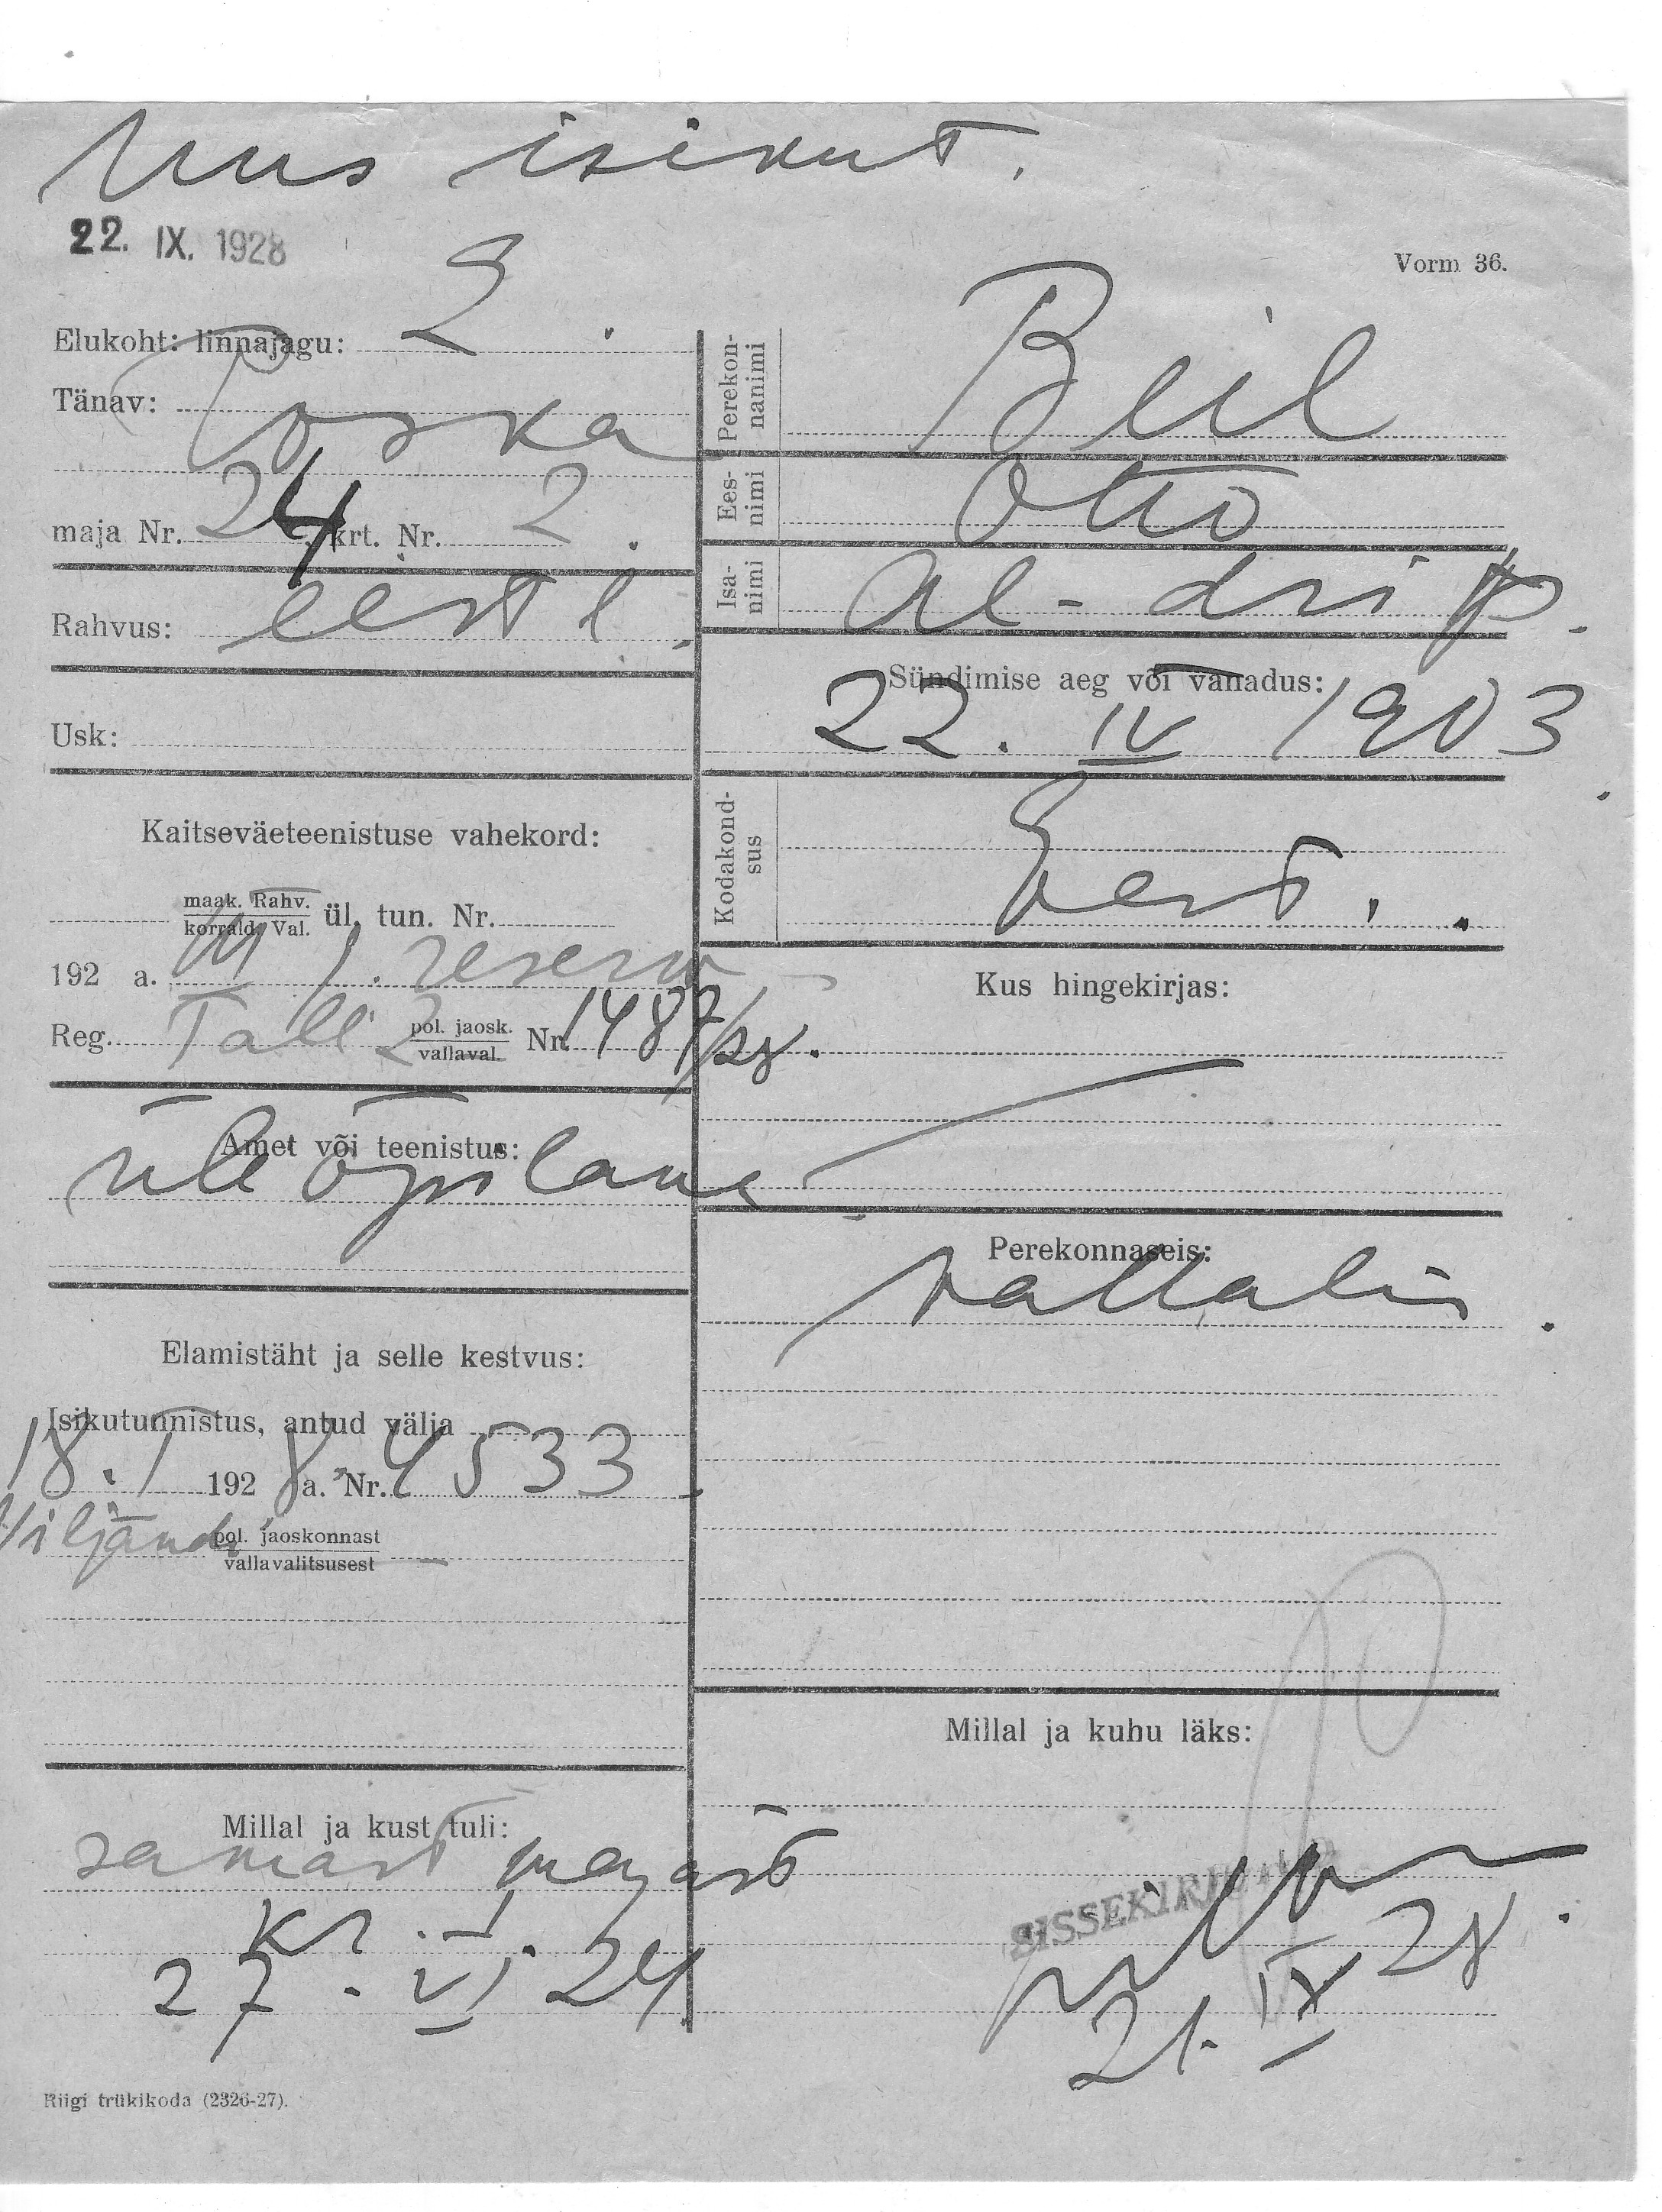 Uus isikut.
22. IX. 1928
Vorm 36.
Elukoht: linnajagu: 2.
Tänav: Poska
maja Nr. 24 krt. Nr. 2.
Rahvus: eesti.
Usk:
Kaitseväeteenistuse vahekord:
maak. Rahv.
korrald. Val. ül. tun. Nr.
192 a. reserv
Reg. Tall 2 pol. jaosk. Nr. 1487/28.
vallaval.
Amet või teenistus:
üliõpilane
Elamistäht ja selle kestvus:
Isikutunnistus, antud välja
18. I 1928 a. Nr. 4533
Viljandi pol. jaoskonnast
vallavalitsusest
Millal ja kust tuli:
samast majast
kr. I.
27. VI 24
Riigi trükikoda (2326-27).
Perekonnanimi Beil
Eesnimi Otto
Isanimi Al-dri p.
Sündimise aeg või vanadus:
22. IV 1903
Kodakondsus Eest.
Kus hingekirjas:
Perekonnaseis:
vallalin.
Millal ja kuhu läks:
21. IX 28.